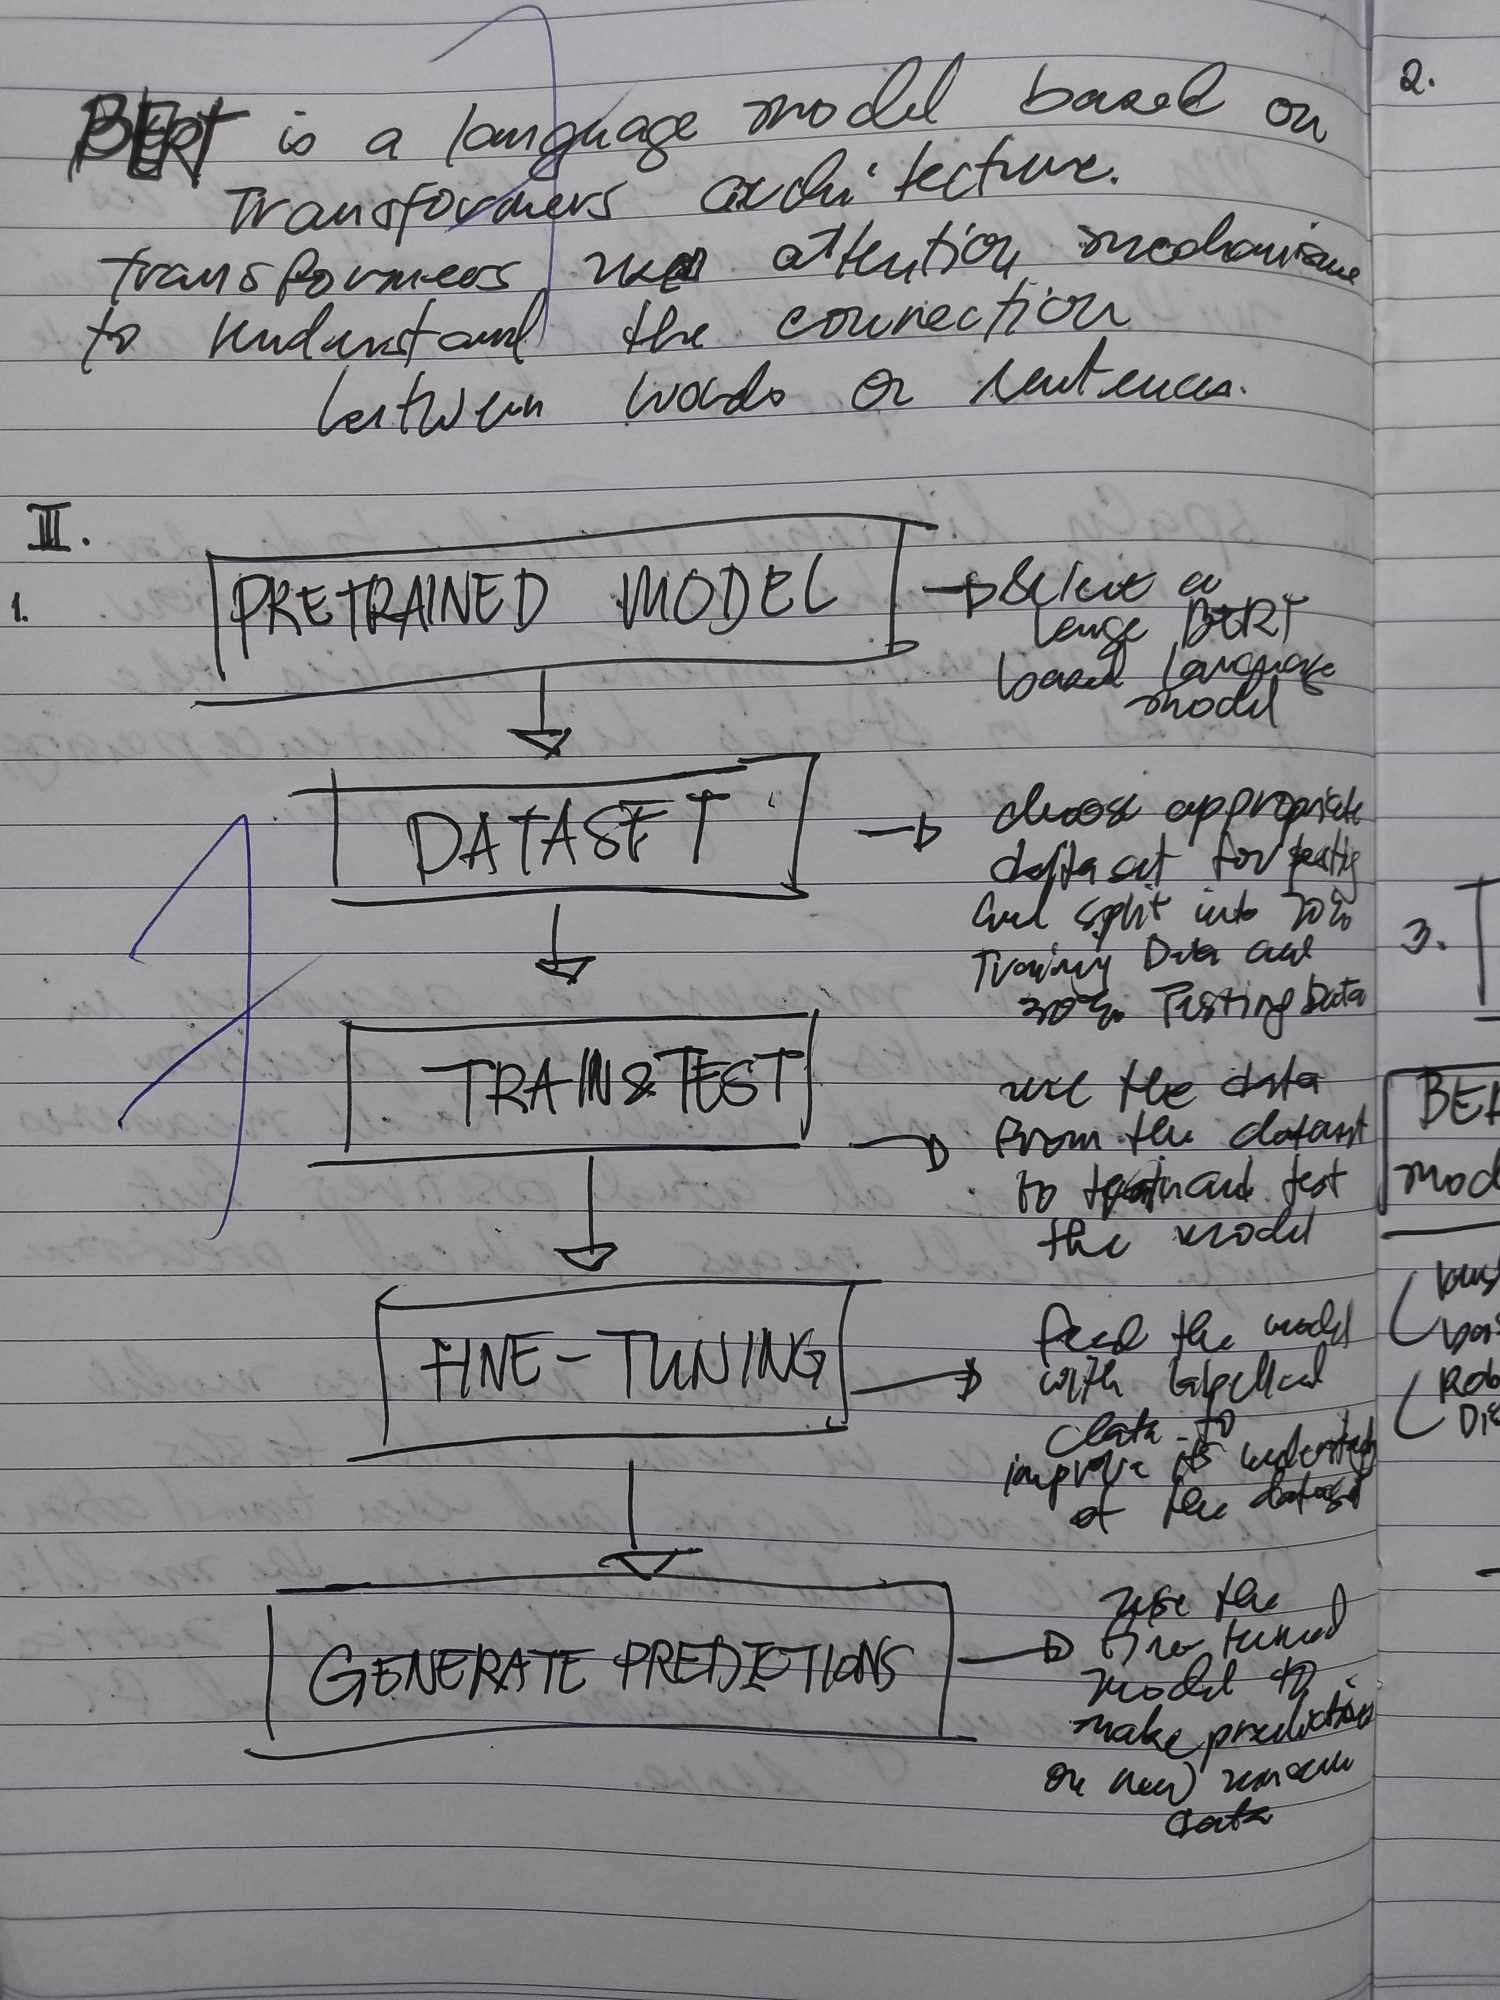 BERT is a language model based on
Transformers architecture.
transformers use attention mechanisms
to understand the connection
between words or sentences.
III.
1.
PRETRAINED MODEL
Select a
large BERT
based language
model
DATASET
choose appropriate
dataset for testing
and split into 70%
Training Data and
30% Testing Data
TRAIN&TEST
use the data
from the dataset
to train and test
the model
FINE-TUNING
feed the model
with labelled
data to
improve its understanding
of the dataset
GENERATE PREDICTIONS
use the
fine tuned
model to
make predictions
on new unseen
data
2.
3.